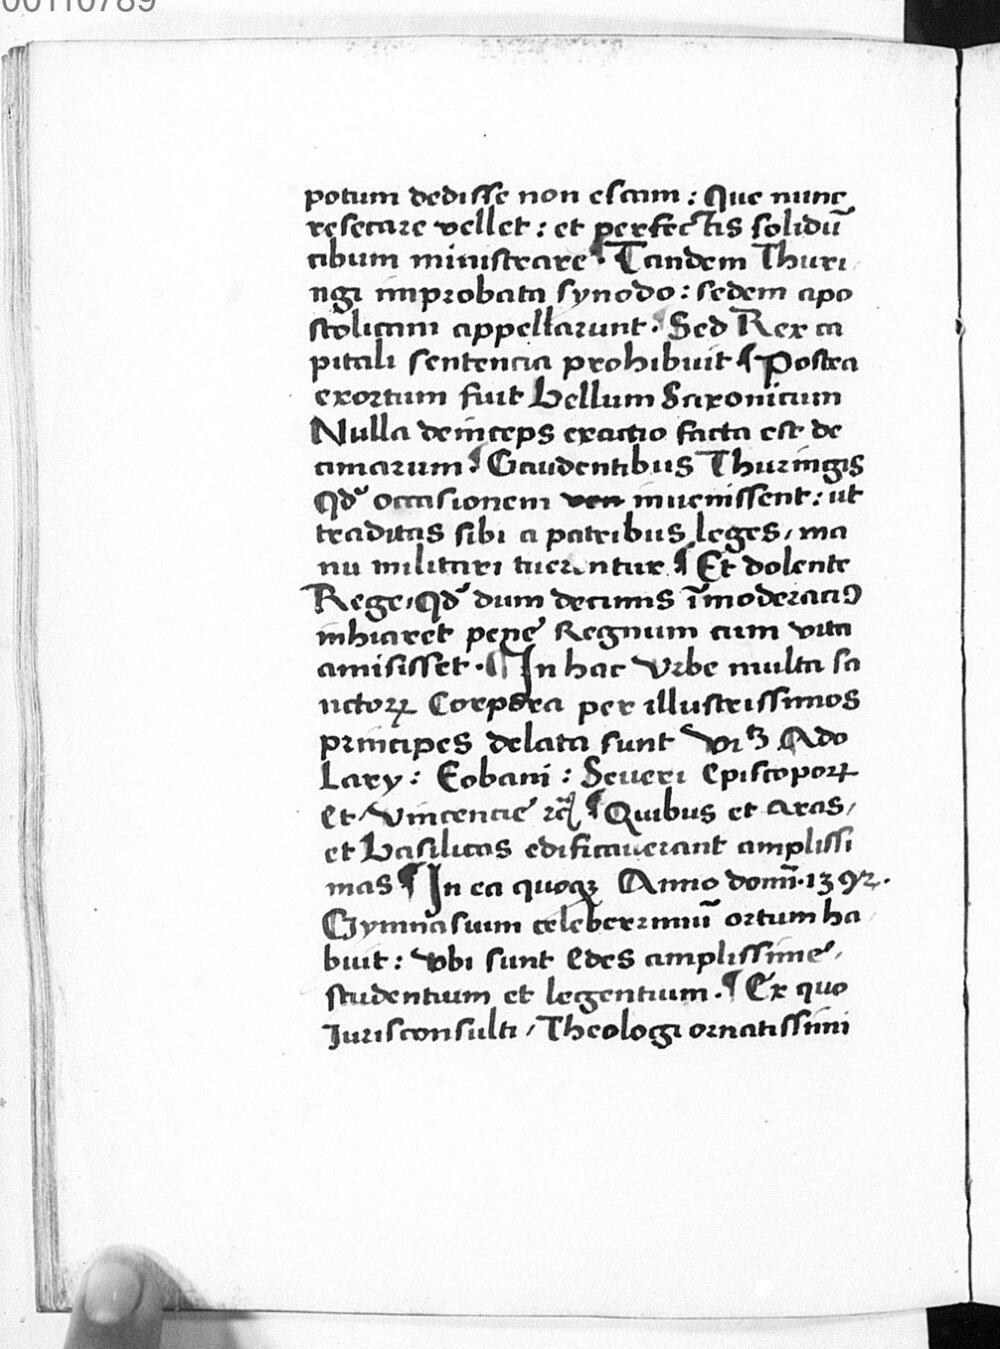 00110789
potum dedisse non escam : Que nunc
resecare vellet : et perfectis solidū
cibum ministrare · Tandem Thuri
ngi improbata synodo : sedem apo
stolicam appellarunt · ¶ Sed Rex ca
pitali sentencia prohibuit ¶ Postea
exortum fuit bellum Saxonicum
Nulla deinceps exactio facta est de
cimarum ¶ Gaudentibus Thuringis
Qd' occasionem inuenissent : ut
traditas sibi a patribus leges, ma
nu militari tuerentur ¶ Et dolente
Rege, Qd' dum decimis īmoderaciꝰ
inhiaret pene Regnum cum vita
amisisset · ¶ In hac Vrbe multa sa
nctorꝝ Corpora per illustrissimos
principes delata sunt Ado
Lary : Eobani : Seueri Episcoporꝝ
et Vincencie ¶ Quibus et aras,
et basilicas edificauerant amplissi
mas ¶ In ea quoqꝫ Anno domī · 1392 ·
Gymnasium celeberrimū ortum ha
buit : vbi sunt edes amplissime,
studentium et legentium · ¶ Ex quo
Jurisconsulti, Theologi ornatissimi